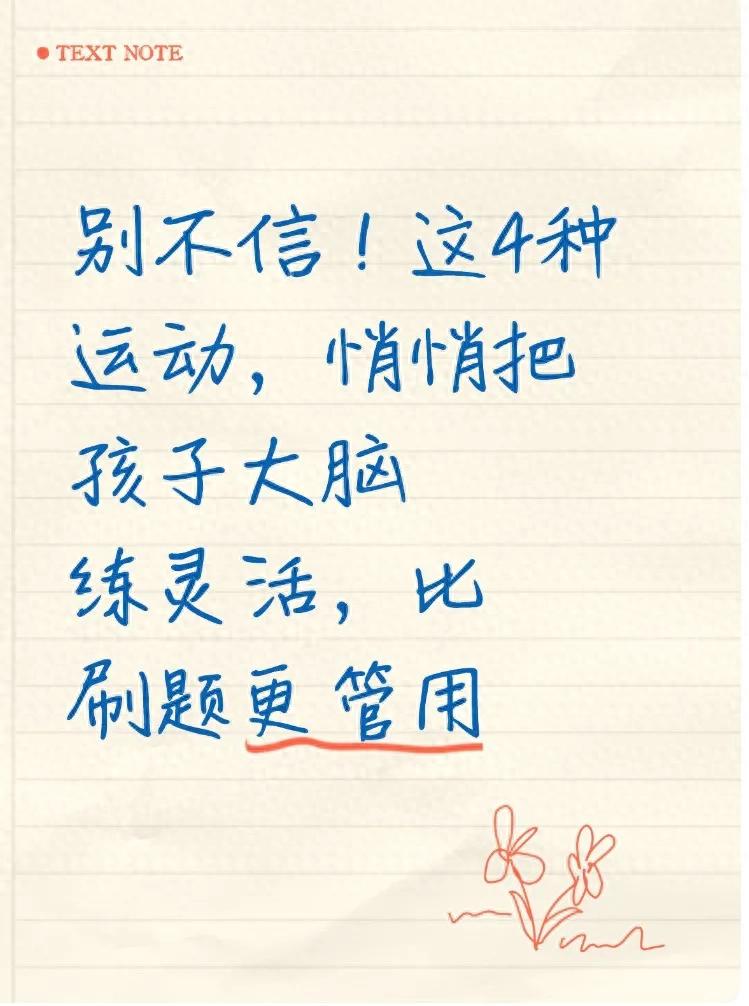 TEXT NOTE
别不信！这4种
运动，悄悄把
孩子大脑
练灵活，比
刷题更管用